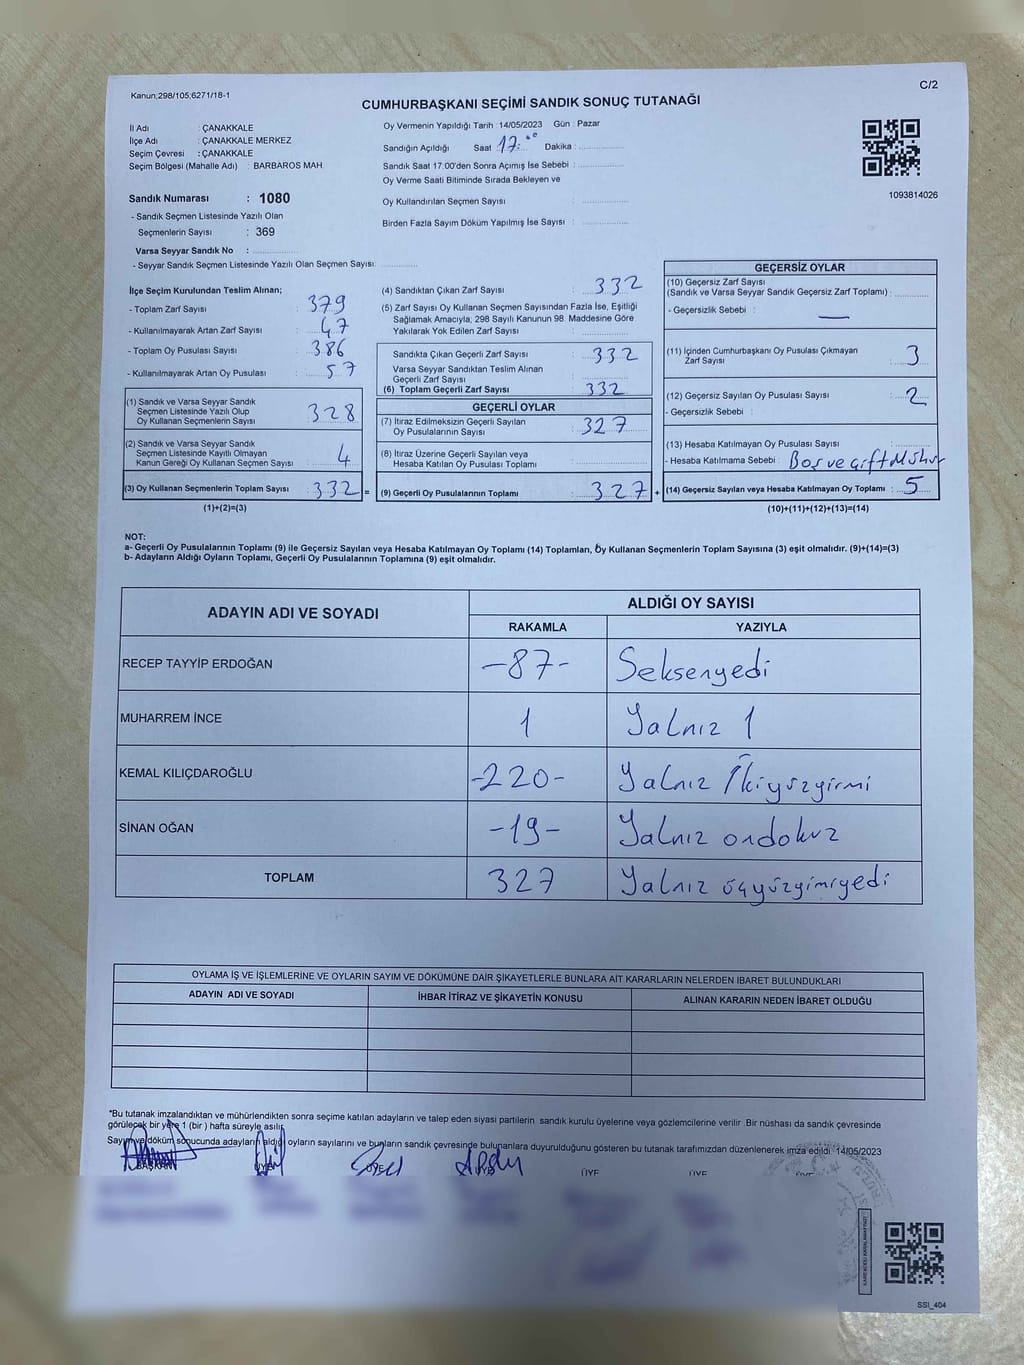 Kanun;298/105,6271/18-1
C/2
CUMHURBAŞKANI SEÇİMİ SANDIK SONUÇ TUTANAĞI
İl Adı : ÇANAKKALE
İlçe Adı : ÇANAKKALE MERKEZ
Seçim Çevresi : ÇANAKKALE
Seçim Bölgesi (Mahalle Adı) : BARBAROS MAH.
Oy Vermenin Yapıldığı Tarih : 14/05/2023 Gün : Pazar
Sandığın Açıldığı Saat 17:00 Dakika :
Sandık Saat 17:00'den Sonra Açımış İse Sebebi :
Oy Verme Saati Bitiminde Sırada Bekleyen ve
Oy Kullandırılan Seçmen Sayısı :
Birden Fazla Sayım Döküm Yapılmış İse Sayısı :
1093814026
Sandık Numarası : 1080
- Sandık Seçmen Listesinde Yazılı Olan
Seçmenlerin Sayısı : 369
Varsa Seyyar Sandık No :
- Seyyar Sandık Seçmen Listesinde Yazılı Olan Seçmen Sayısı:
İlçe Seçim Kurulundan Teslim Alınan;
- Toplam Zarf Sayısı : 379
- Kullanılmayarak Artan Zarf Sayısı : 47
- Toplam Oy Pusulası Sayısı : 386
- Kullanılmayarak Artan Oy Pusulası : 57
(1) Sandık ve Varsa Seyyar Sandık
Seçmen Listesinde Yazılı Olup
Oy Kullanan Seçmenlerin Sayısı : 328
(2) Sandık ve Varsa Seyyar Sandık
Seçmen Listesinde Kayıtlı Olmayan
Kanun Gereği Oy Kullanan Seçmen Sayısı : 4
(3) Oy Kullanan Seçmenlerin Toplam Sayısı : 332 =
(1)+(2)=(3)
(4) Sandıktan Çıkan Zarf Sayısı : 332
(5) Zarf Sayısı Oy Kullanan Seçmen Sayısından Fazla İse, Eşitliği
Sağlamak Amacıyla; 298 Sayılı Kanunun 98. Maddesine Göre
Yakılarak Yok Edilen Zarf Sayısı :
Sandıkta Çıkan Geçerli Zarf Sayısı : 332
Varsa Seyyar Sandıktan Teslim Alınan
Geçerli Zarf Sayısı :
(6) Toplam Geçerli Zarf Sayısı : 332
GEÇERLİ OYLAR
(7) İtiraz Edilmeksizin Geçerli Sayılan
Oy Pusulalarının Sayısı : 327
(8) İtiraz Üzerine Geçerli Sayılan veya
Hesaba Katılan Oy Pusulası Toplamı :
(9) Geçerli Oy Pusulalarının Toplamı : 327 +
GEÇERSİZ OYLAR
(10) Geçersiz Zarf Sayısı
(Sandık ve Varsa Seyyar Sandık Geçersiz Zarf Toplamı) :
- Geçersizlik Sebebi : —
(11) İçinden Cumhurbaşkanı Oy Pusulası Çıkmayan
Zarf Sayısı : 3
(12) Geçersiz Sayılan Oy Pusulası Sayısı : 2
- Geçersizlik Sebebi :
(13) Hesaba Katılmayan Oy Pusulası Sayısı :
- Hesaba Katılmama Sebebi : Boş ve çift Mühür
(14) Geçersiz Sayılan veya Hesaba Katılmayan Oy Toplamı : 5
(10)+(11)+(12)+(13)=(14)
NOT:
a- Geçerli Oy Pusulalarının Toplamı (9) ile Geçersiz Sayılan veya Hesaba Katılmayan Oy Toplamı (14) Toplamları, Oy Kullanan Seçmenlerin Toplam Sayısına (3) eşit olmalıdır. (9)+(14)=(3)
b- Adayların Aldığı Oyların Toplamı, Geçerli Oy Pusulalarının Toplamına (9) eşit olmalıdır.
ADAYIN ADI VE SOYADI
ALDIĞI OY SAYISI
RAKAMLA YAZIYLA
RECEP TAYYİP ERDOĞAN -87- Seksenyedi
MUHARREM İNCE 1 Yalnız 1
KEMAL KILIÇDAROĞLU -220- Yalnız İkiyüzyirmi
SİNAN OĞAN -19- Yalnız ondokuz
TOPLAM 327 Yalnız üçyüzyimiyedi
OYLAMA İŞ VE İŞLEMLERİNE VE OYLARIN SAYIM VE DÖKÜMÜNE DAİR ŞİKAYETLERLE BUNLARA AİT KARARLARIN NELERDEN İBARET BULUNDUKLARI
ADAYIN ADI VE SOYADI İHBAR İTİRAZ VE ŞİKAYETİN KONUSU ALINAN KARARIN NEDEN İBARET OLDUĞU
*Bu tutanak imzalandıktan ve mühürlendikten sonra seçime katılan adayların ve talep eden siyasi partilerin sandık kurulu üyelerine veya gözlemcilerine verilir. Bir nüshası da sandık çevresinde
görülecek bir yere 1 (bir ) hafta süreyle asılır.
Sayım ve döküm sonucunda adayların aldığı oyların sayılarını ve bunların sandık çevresinde bulunanlara duyurulduğunu gösteren bu tutanak tarafımızdan düzenlenerek imza edildi. 14/05/2023
BAŞKAN ÜYE ÜYE ÜYE ÜYE ÜYE ÜYE
SSI_404